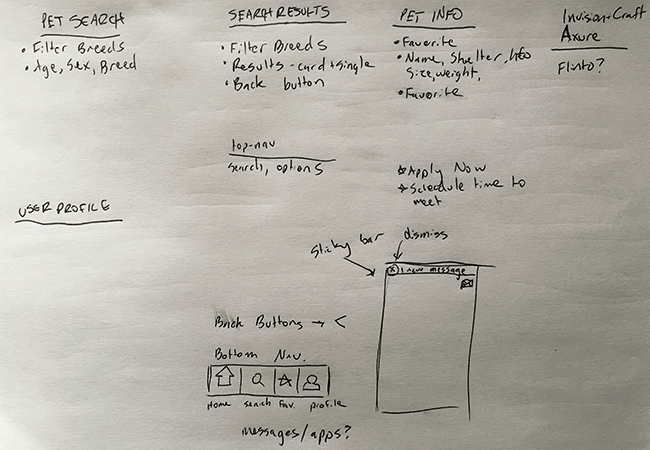 PET SEARCH
• Filter Breeds
• Age, Sex, Breed
SEARCH RESULTS
• Filter Breeds
• Results - card + single
• Back button
PET INFO
• Favorite
• Name, Shelter, Info
Size, weight,
• Favorite
Invision-Craft
Axure
Flinto?
top-nav
search, options
☆ Apply Now
☆ Schedule time to
meet
USER PROFILE
Sticky bar
dismiss
x 1 new message
Back Buttons → <
Bottom Nav.
Home Search Fav. profile
messages/apps?